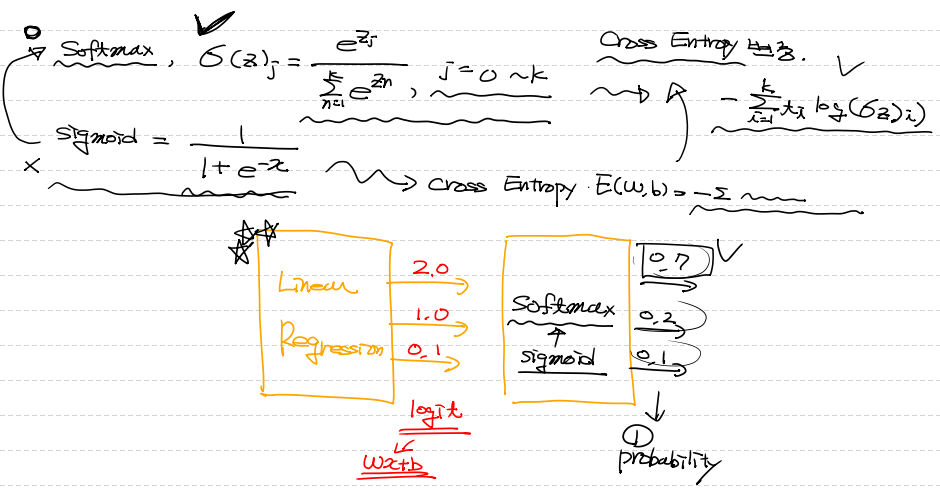 Softmax, σ(z)j = e^zj / Σ(n=1 to k) e^zn, j = 0 ~ k
Cross Entropy
- Σ(i=1 to k) ti log(σ(z)i)
sigmoid = 1 / 1 + e^-x
Cross Entropy E(W,b) = -Σ
Linear
Regression
2.0
1.0
0.1
Softmax
sigmoid
0.7
0.2
0.1
logit
Wx+b
① probability